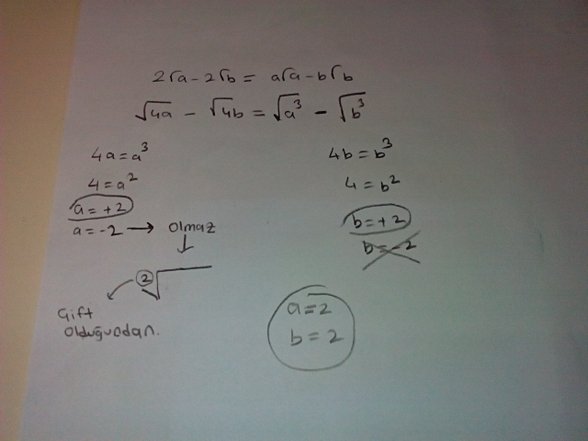 2√a - 2√b = a√a - b√b
√4a - √4b = √a³ - √b³
4a = a³
4 = a²
a = +2
a = -2 → olmaz
↓
2√
Çift
olduğundan.
4b = b³
4 = b²
b = +2
b = -2
a = 2
b = 2